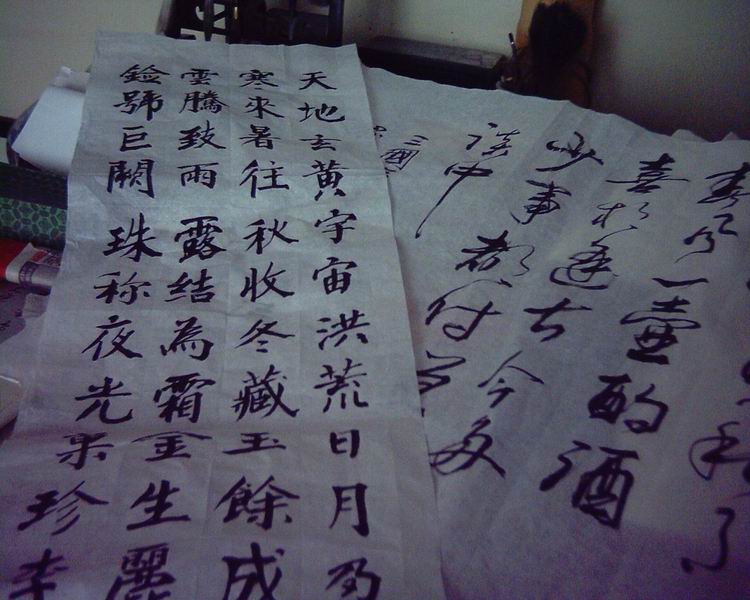 天地玄黃宇宙洪荒日月
寒來暑往秋收冬藏玉餘成
雲騰致雨露結為霜金生麗
鐱號巨闕珠称夜光果珍李
春风一壺酌酒
喜相逢古今多
少事都付笑
談中
三國